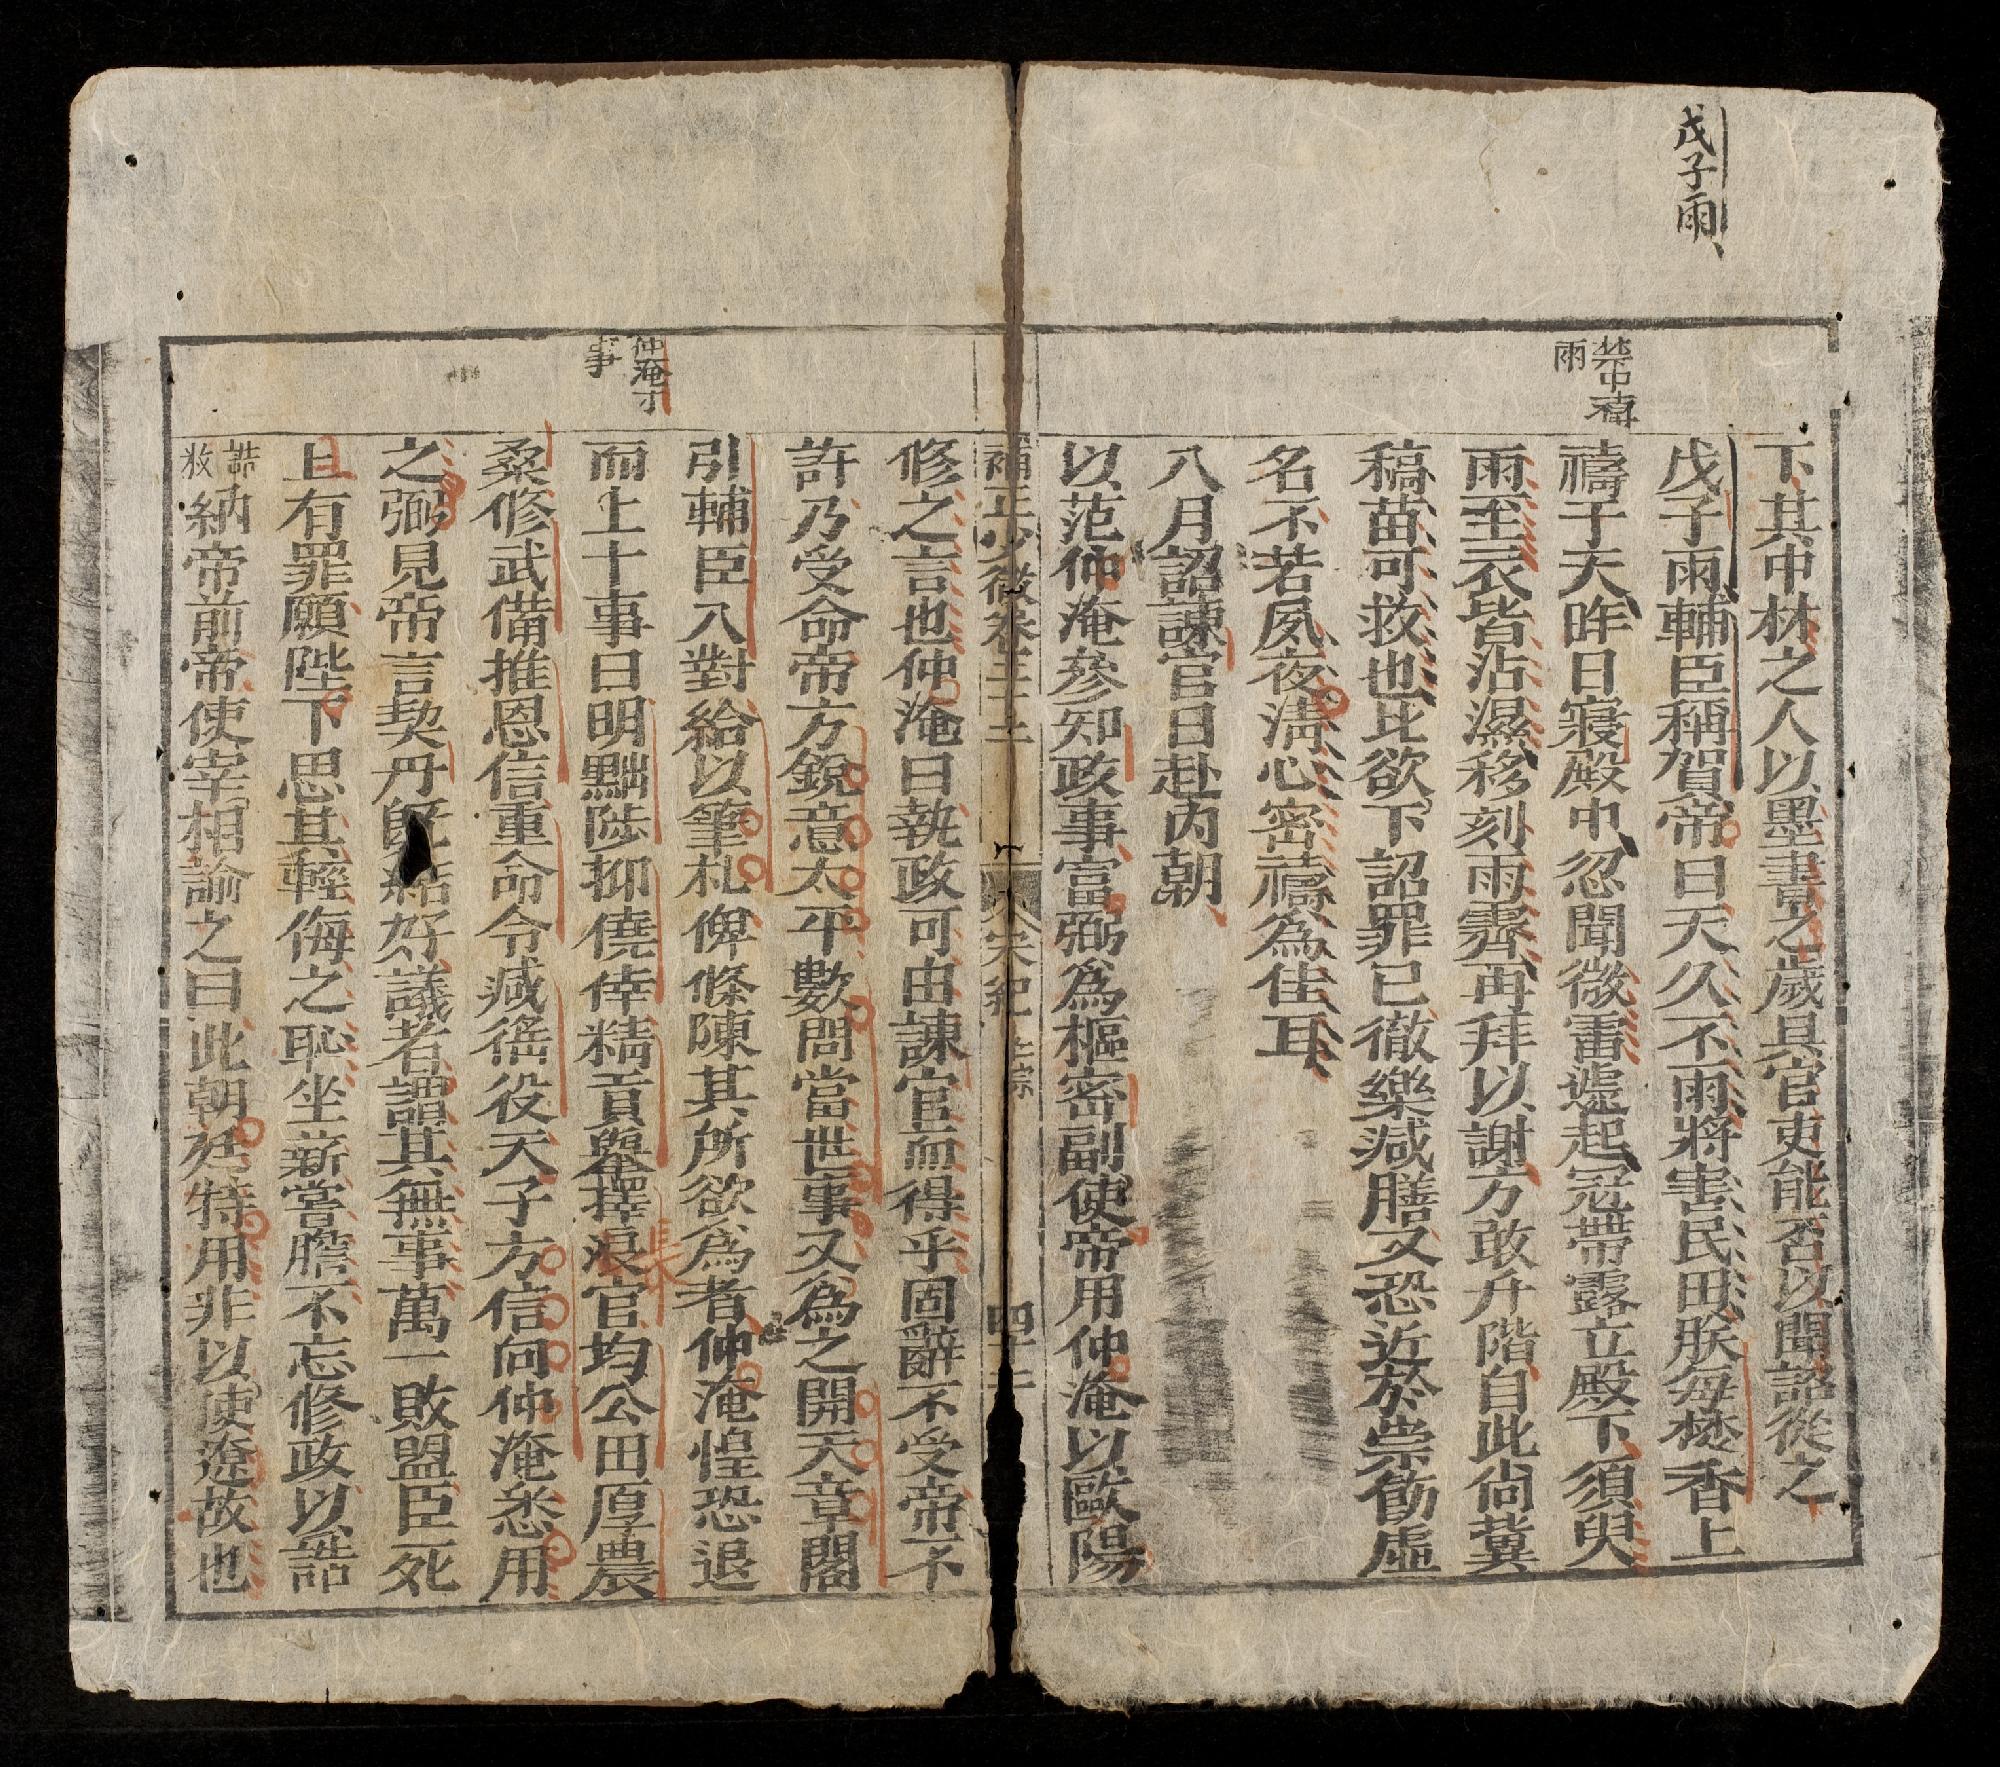 戊子雨
禁中禱
雨
下其中林之人以墨書之歲具官吏能否以聞詔從之
戊子雨輔臣稱賀帝曰天久不雨將害民田朕每焚香上
禱于天昨日寢殿中忽聞微雷遽起冠帶露立殿下須臾
雨至衣皆沾濕移刻雨霽再拜以謝方敢升階自此尚冀
稿苗可救也比欲下詔罪已徹樂減膳又恐近於崇飭虛
名不若夙夜淸心密禱為佳耳
八月詔諫官日赴內朝
以范仲淹參知政事富弼為樞密副使帝用仲淹以歐陽
補正少微卷三十二
宋紀 仁宗
四十二
仲淹十
事
修之言也仲淹曰執政可由諫官而得乎固辭不受帝不
許乃受命帝方銳意太平數問當世事又為之開天章閣
引輔臣入對給以筆札俾條陳其所欲為者仲淹惶恐退
而上十事曰明黜陟抑僥倖精貢舉擇 官均公田厚農
長
桑修武備推恩信重命令減徭役天子方信向仲淹悉用
之弼見帝言契丹既結好議者謂其無事萬一敗盟臣死
且有罪願陛下思其輕侮之恥坐薪嘗膽不忘修政以誥
納帝前帝使宰相諭之曰此朝廷特用非以使遼故也